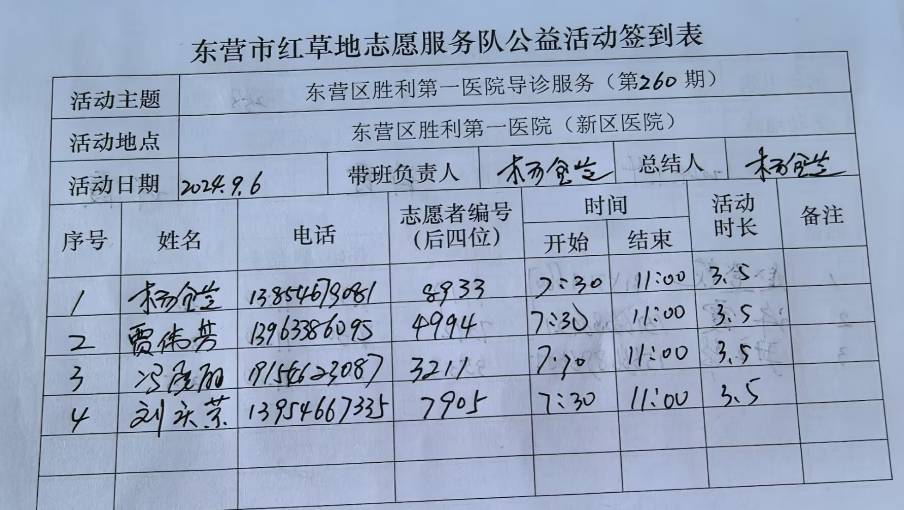 东营市红草地志愿服务队公益活动签到表
活动主题 东营区胜利第一医院导诊服务（第260期）
活动地点 东营区胜利第一医院（新区医院）
活动日期 2024.9.6 带班负责人 杨金兰 总结人 杨金兰
序号 姓名 电话 志愿者编号（后四位） 时间 开始 结束 活动时长 备注
1 杨金兰 13854673081 8933 7:30 11:00 3.5
2 贾伟芳 13963386095 4994 7:30 11:00 3.5
3 冯 19154623087 3211 7:30 11:00 3.5
4 刘庆荣 13954667335 7905 7:30 11:00 3.5